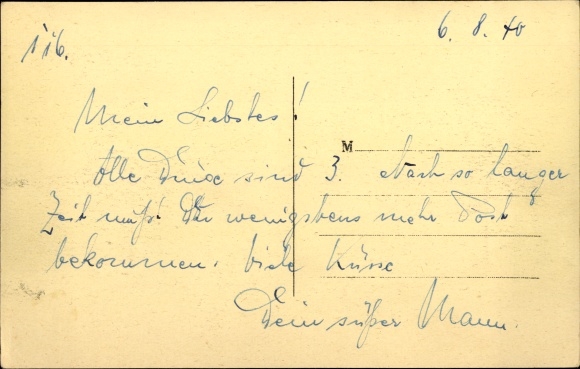 116.
6. 8. 40
Mein Liebstes!
M
Alle Dinge sind 3. Nach so langer
Zeit muß Du wenigstens mehr Post
bekommen. Viele Küsse
Dein süßer Mann.